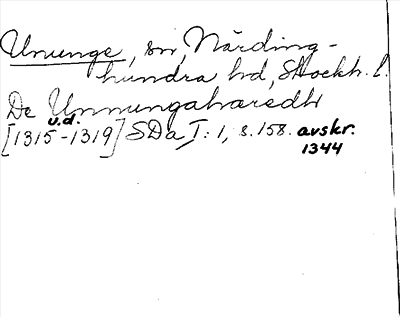 Ununge, sn, Närding-
hundra hd, Stockh. l.
De Unnungaharædh
u.d.
[1315-1319] SDa, I: 1, s. 158. avskr.
1344